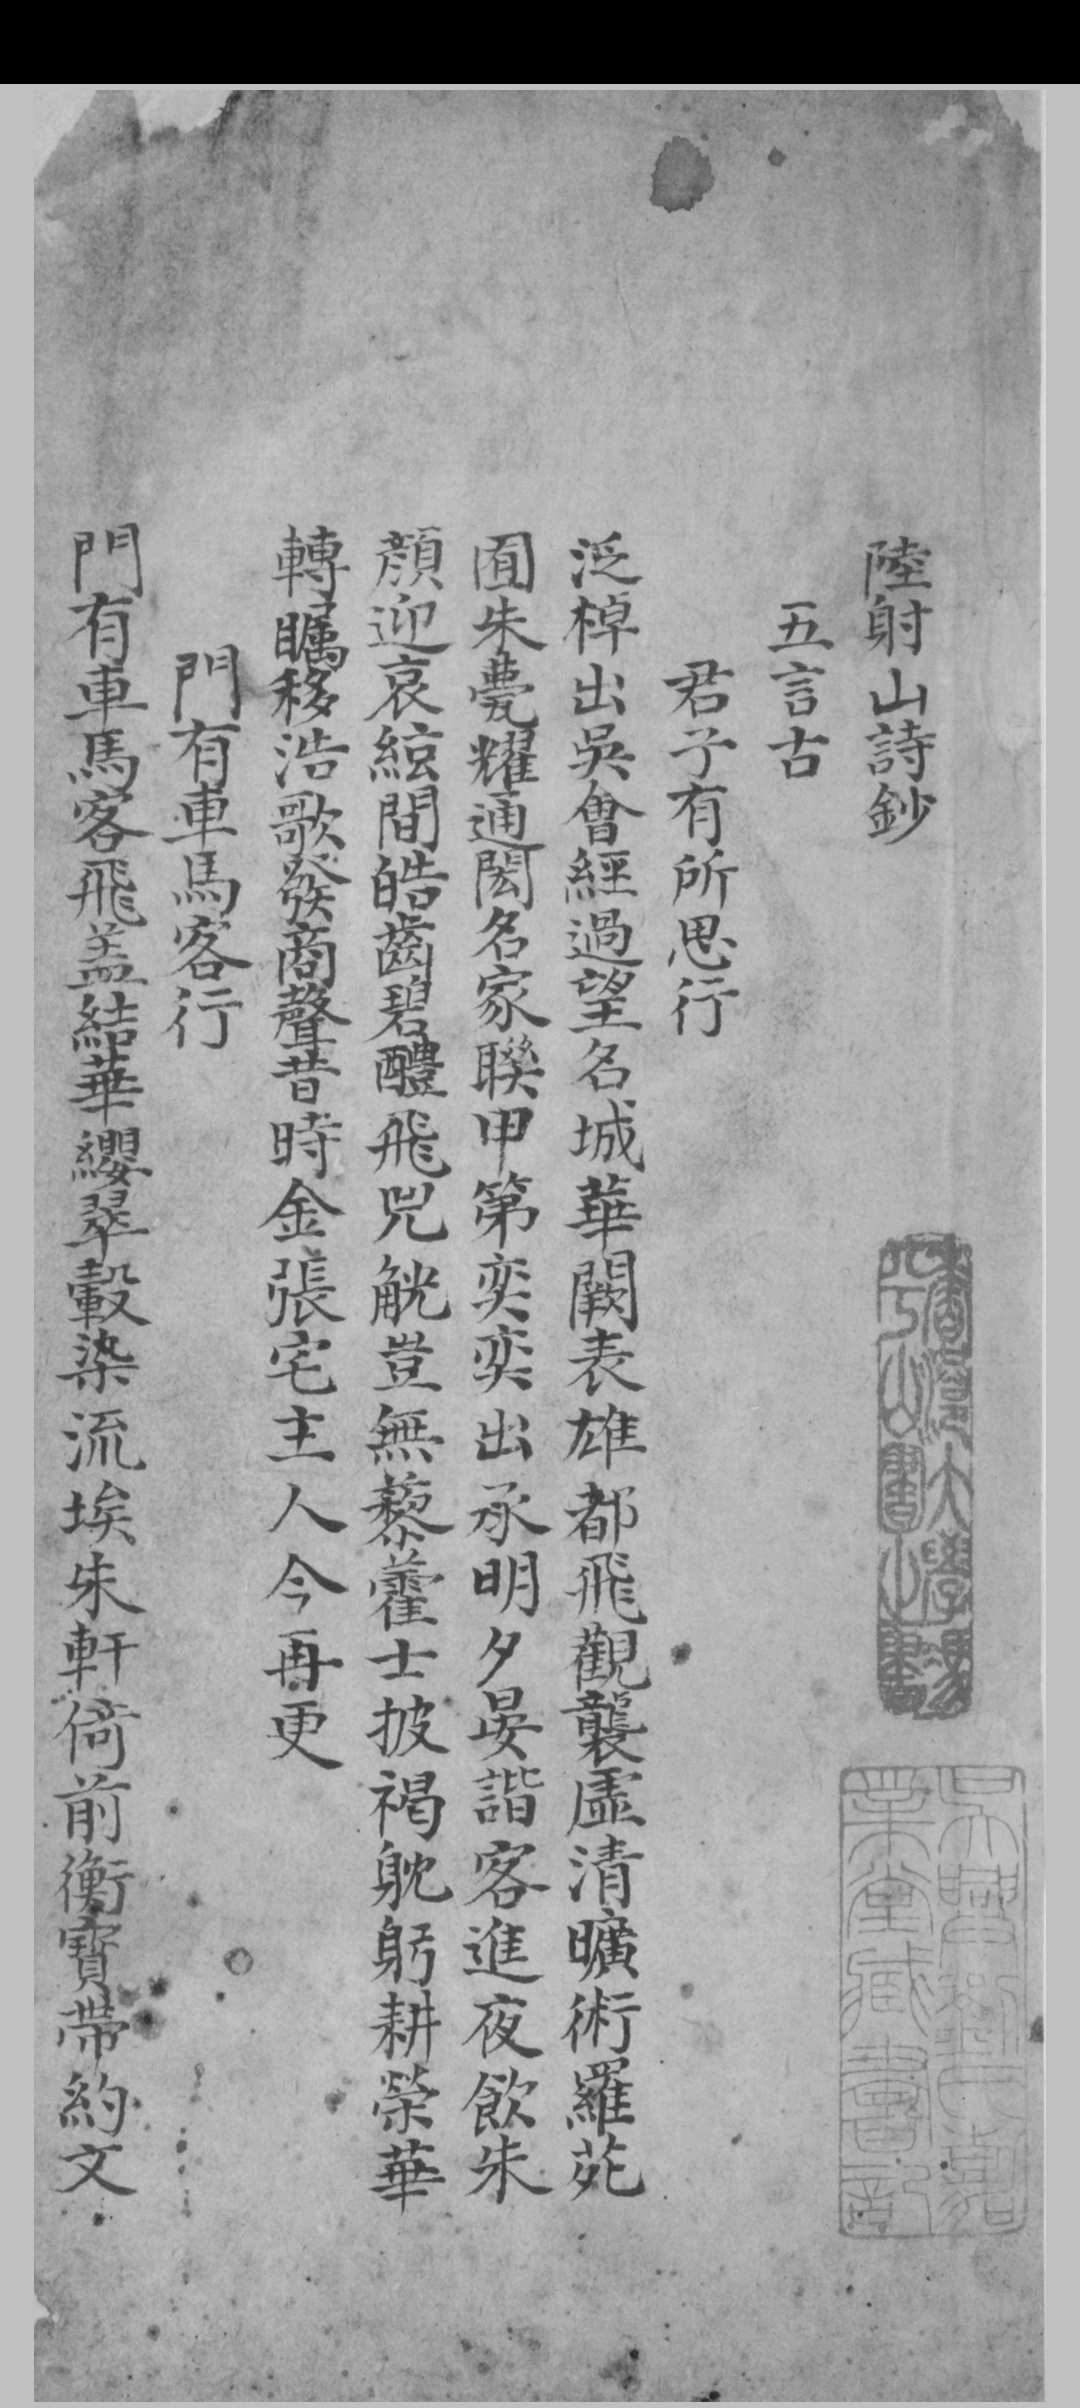 陸射山詩鈔
五言古
君子有所思行
泛棹出吳會經過望名城華闕表雄都飛觀襲虛清曠術羅苑
囿朱甍耀通閎名家聯甲第奕奕出承明夕晏諧客進夜飲朱
顏迎哀絃間皓齒碧醴飛兕觥豈無藜藿士披褐躭躬耕榮華
轉矚移浩歌發商聲昔時金張宅主人今再更
門有車馬客行
門有車馬客飛盖結華纓翠轂染流埃朱軒倚前衡寶帶約文
吳興劉氏嘉
業堂藏書記